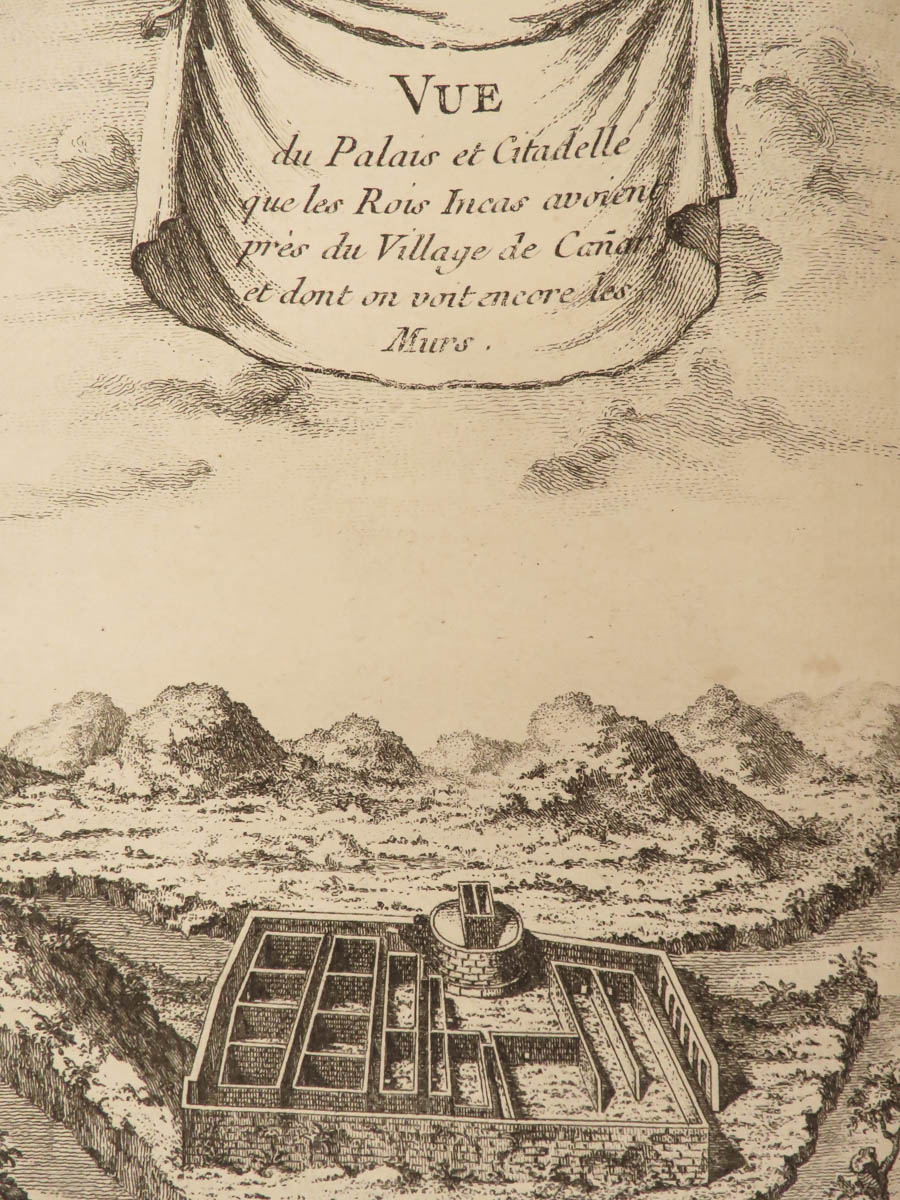 VUE
du Palais et Citadelle
que les Rois Incas avoient
près du Village de Cañar
et dont on voit encore les
Murs.